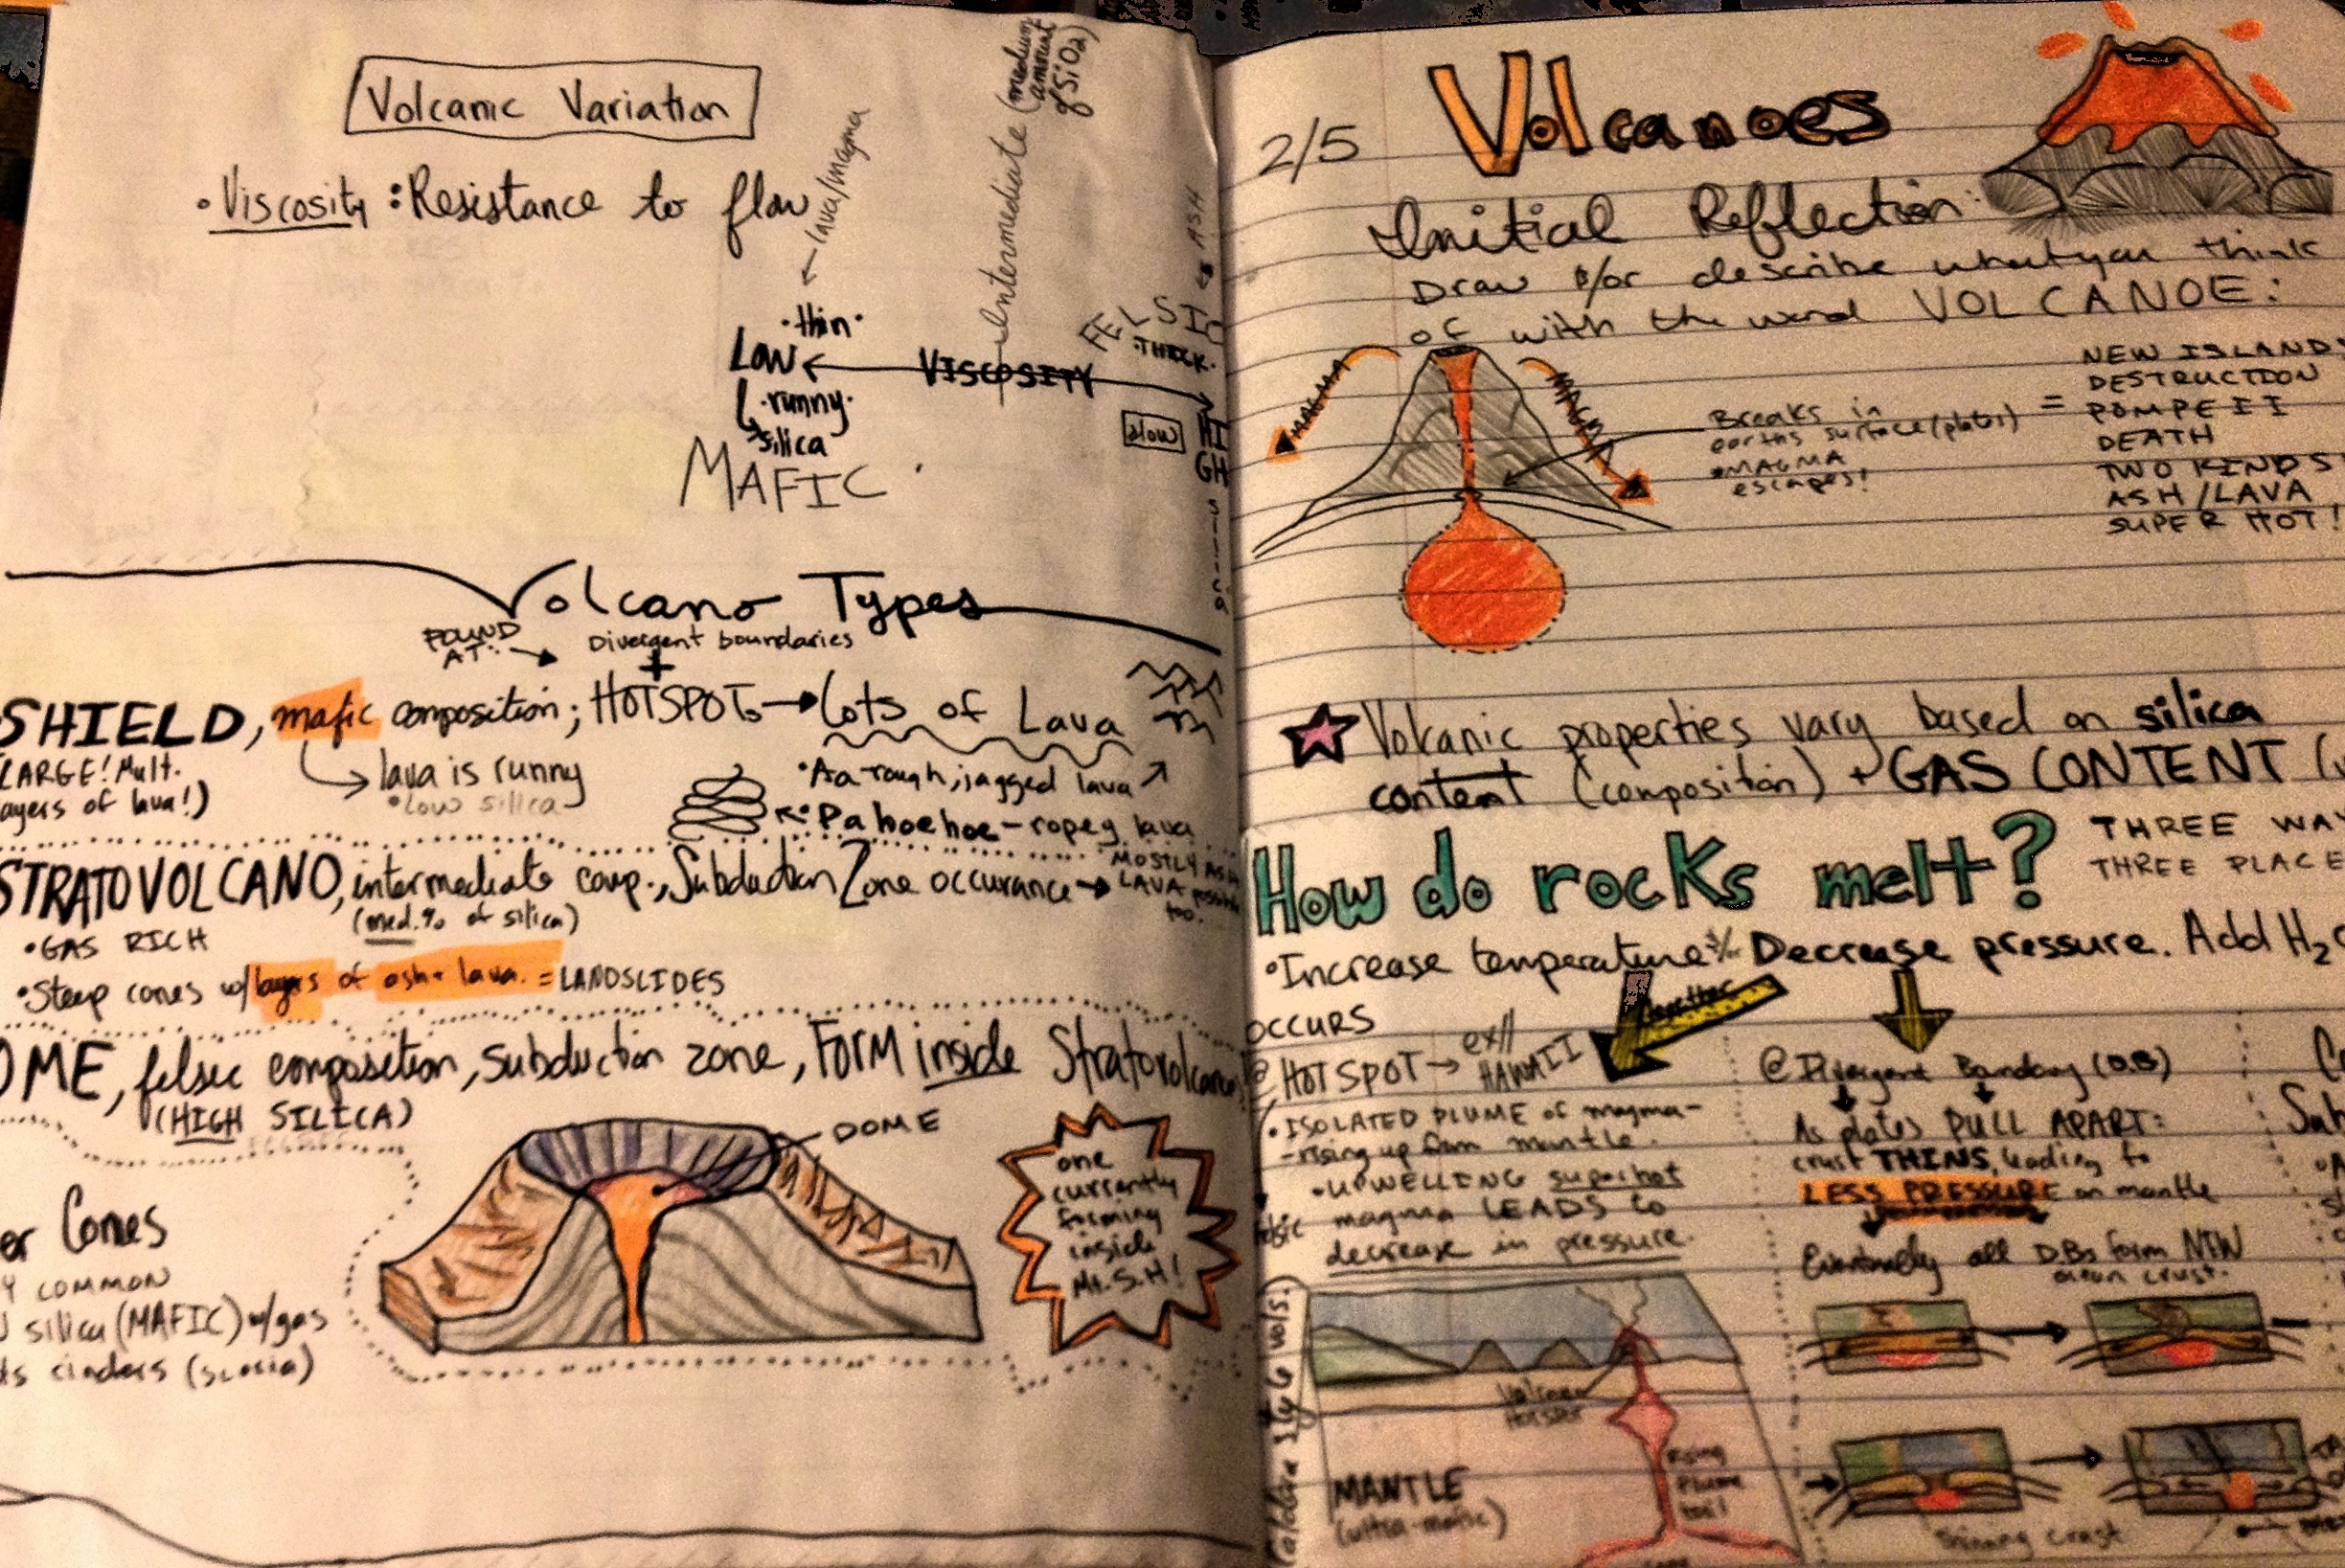 Volcanic Variation
• Viscosity : Resistance to flow
← lava/magma
Intermediate (medium
amount
of SiO2)
← ASH
FELSIC
• thin •
• THICK •
Low
VISCOSITY
HI
GH
• runny •
slow
silica
SILICA
MAFIC
Volcano Types
FOUND
AT:
Divergent boundaries
+
SHIELD, mafic composition; HOTSPOTs → Lots of Lava
LARGE! Mult.
ayers of lava!)
lava is runny
• Low silica
• Aa rough, jagged lava
• Pahoehoe - ropey lava
STRATOVOLCANO, intermediate comp., Subduction Zone occurance →
MOSTLY ASH
LAVA possible
too.
(med. % of silica)
• GAS RICH
• Steep cones w/layers of ash + lava. = LANDSLIDES
OME, felsic composition, subduction zone, FORM inside Stratovolcanoes!
(HIGH SILICA)
DOME
one
currently
forming
inside
Mt. S.H!
er Cones
Y COMMON
silica (MAFIC) w/gas
ts cinders (scoria)
2/5
Volcanoes
Initial Reflection:
Draw &/or describe what you think
of with the word VOLCANOE:
MAGMA
MAGMA
Breaks in
earths surface (plates)
• MAGMA
escapes!
=
NEW ISLANDS
DESTRUCTION
POMPEII
DEATH
TWO KINDS
ASH/LAVA
SUPER HOT!
Volcanic properties vary based on silica
content (composition) + GAS CONTENT (
How do rocks melt?
THREE WAY
THREE PLACE
• Increase temperature & Decrease pressure. Add H2O
together
OCCURS
@ HOTSPOT → ex// HAWAII
• ISOLATED PLUME of magma-
-rising up from mantle.
• UPWELLING superhot
magma LEADS to
decrease in pressure.
@ Divergent Boundary (D.B)
As plates PULL APART:
crust THINS, leading to
LESS PRESSURE on mantle
Eventually all DBs form NEW
ocean crust.
Caldera style vols.)
Volcano
Hotspot
MANTLE
(ultra-mafic)
Rising
Plume
tail
thinning crust